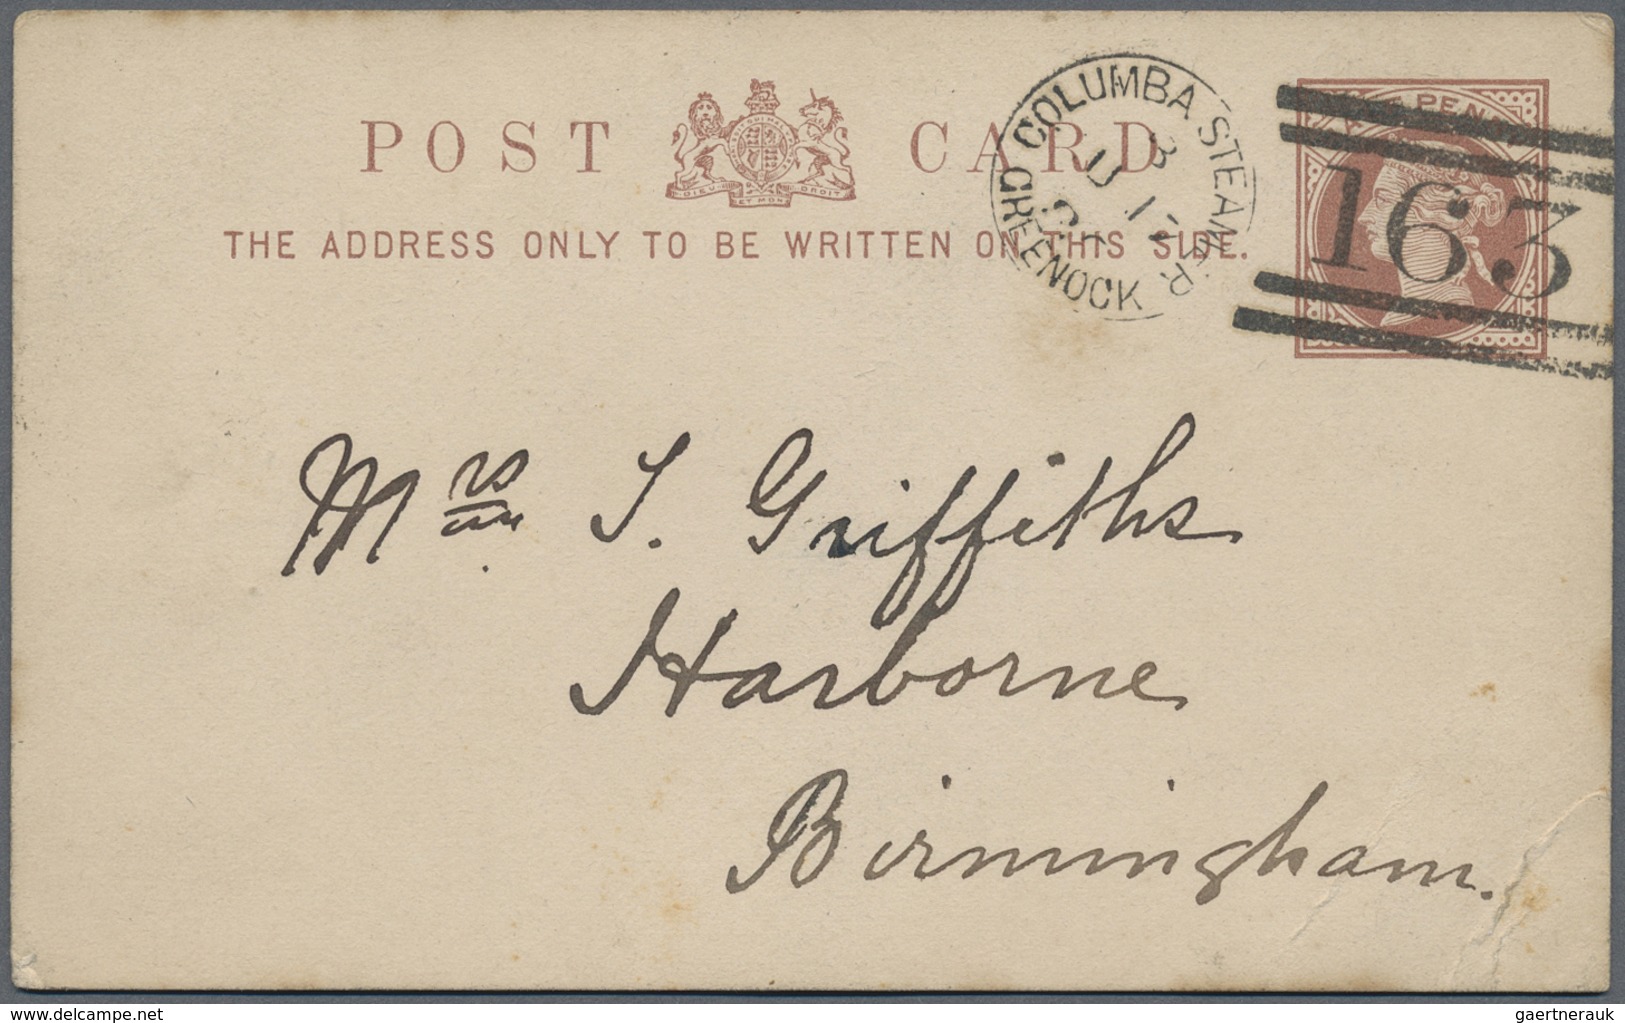 POST CARD
DIEU ET MON DROIT
THE ADDRESS ONLY TO BE WRITTEN ON THIS SIDE.
COLUMBA STEAMER
GREENOCK
163
Mrs J. Griffiths
Harborne
Birmingham.
delcampe.net
gaertnerauk